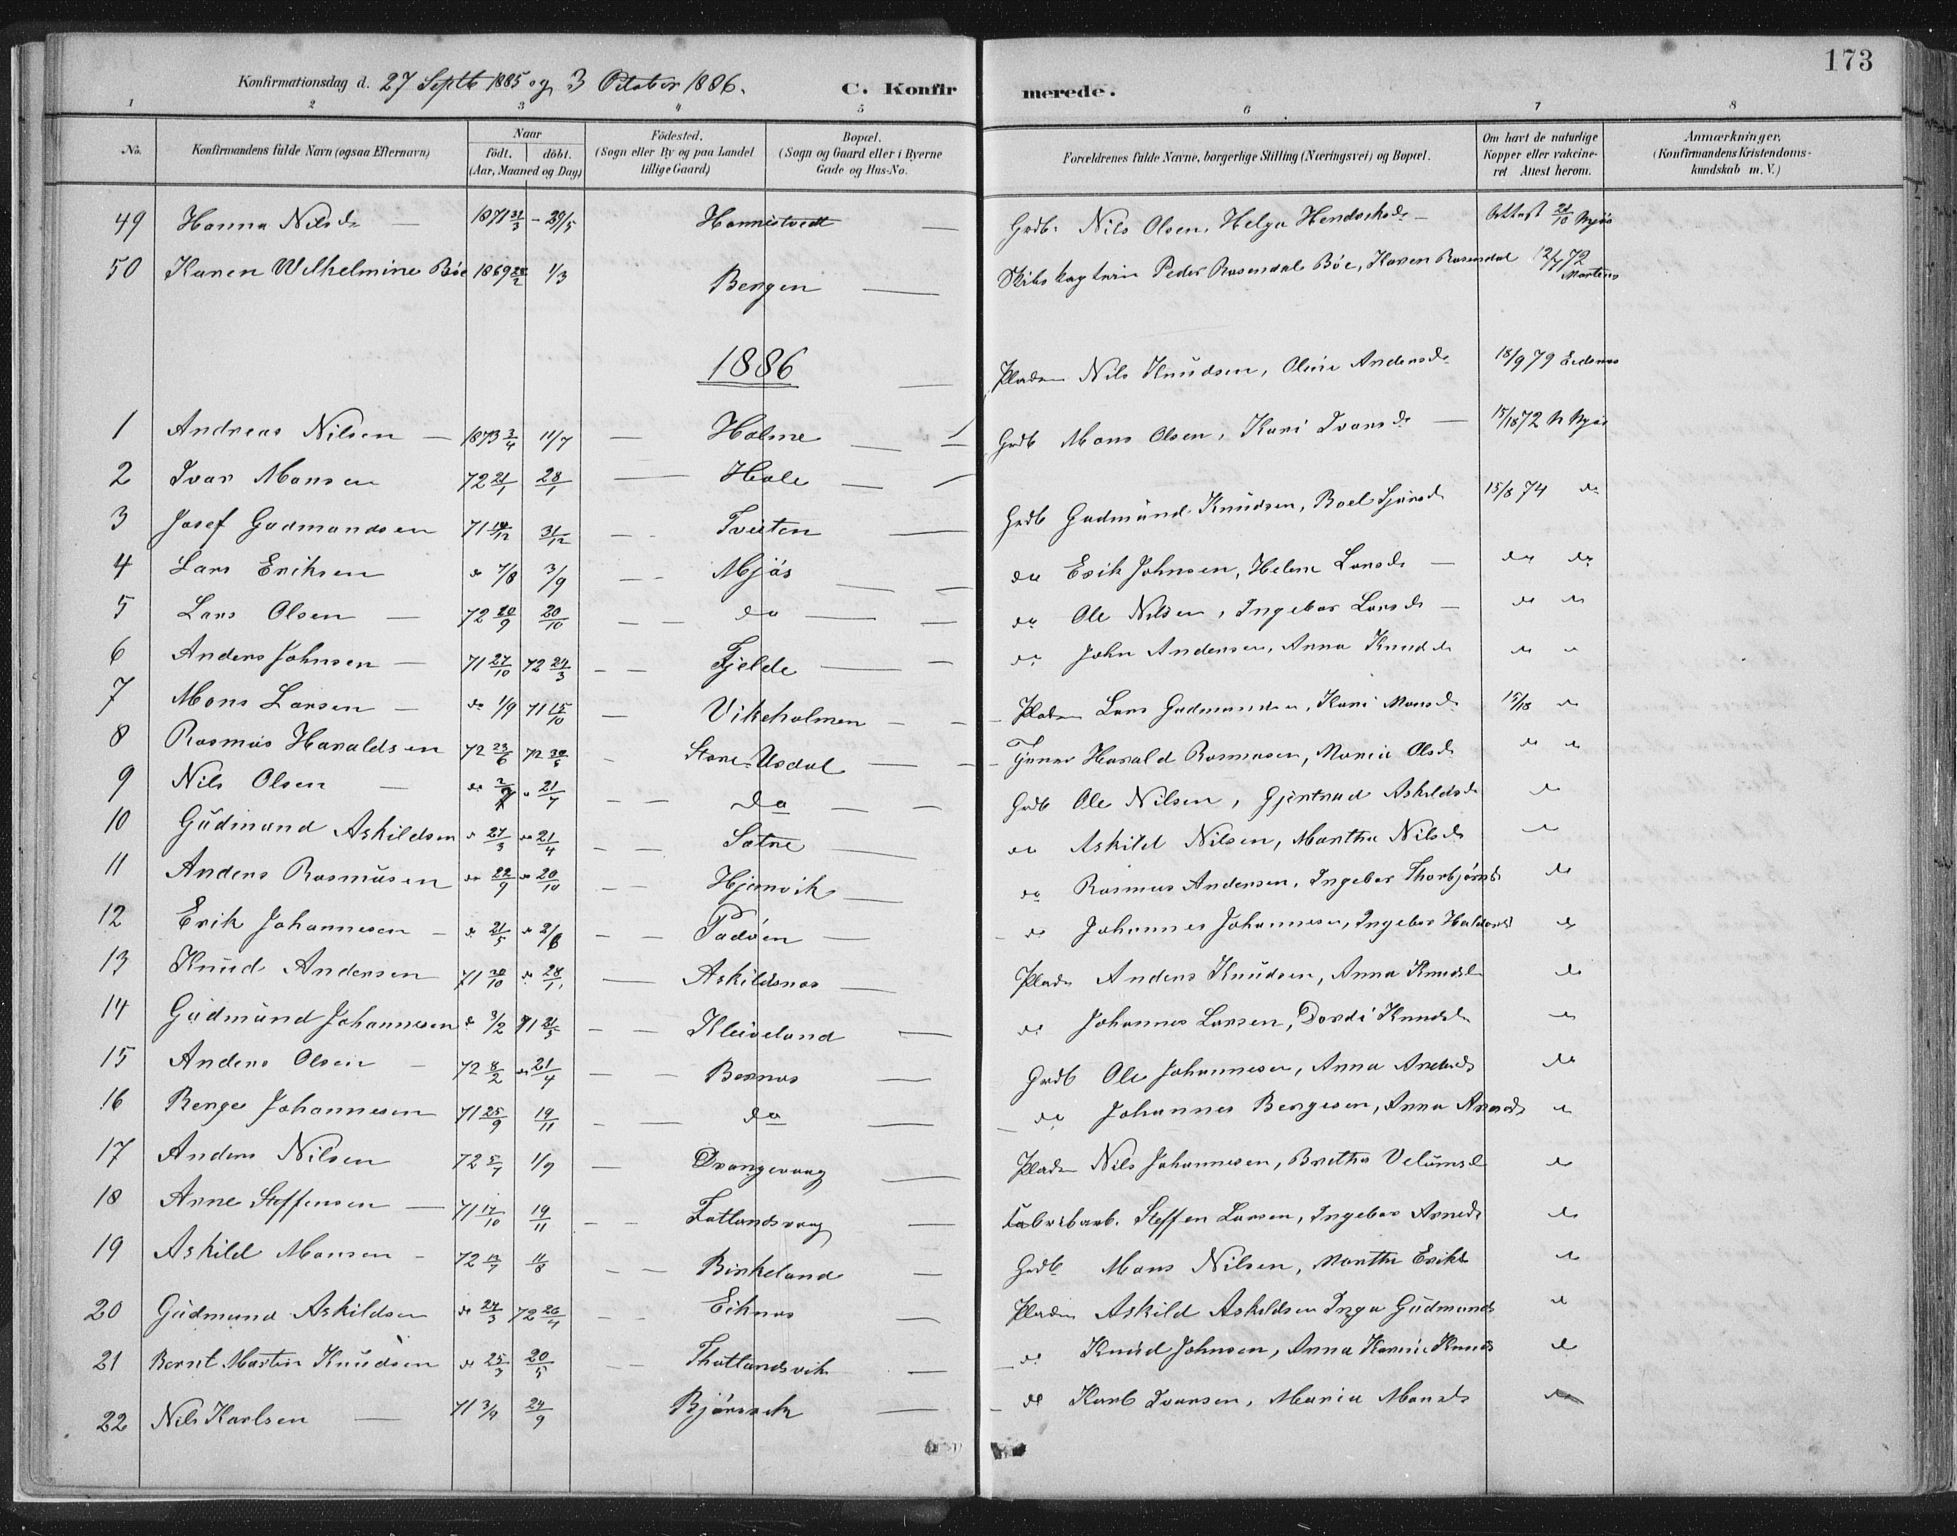 173
Konfirmationsdag d. 27 Septb 1885 og 3 October 1886. C. Konfirmerede.
1 2 3 4 5 6 7 8
No. Konfirmandens fulde Navn (ogsaa Efternavn) Naar født. døbt. (Aar, Maaned og Dag) Fødested. (Sogn eller By og paa Landet tillige Gaard) Bopæl. (Sogn og Gaard eller i Byerne Gade og Hus-No. Forældrenes fulde Navne, borgerlige Stilling (Næringsvei) og Bopæl. Om havt de naturlige Kopper eller vakcineret Attest herom. Anmærkninger. (Konfirmandens Kristendomskundskab m. V.)
49 Hanna Nilsd. — 1871 31/3 - 29/5 Hannistvedt — Grdb. Nils Olsen, Helga Hendriksd. — Attest 21/10 Mjøs
50 Karen Wilhelmine Böe 1869 22/2 1/3 Bergen — Skibskaptein Peder Rosendal Böe, Karen Rosendal 12/7 72 Martens
1886
Pladsm Nils Knudsen, Oline Andersd. 18/9 79
1 Andreas Nilsen — 1873 3/4 11/7 — Holme — Grdb Mons Olsen, Kari Ivarsd. — 15/18 72
2 Ivar Monsen 72 21/1 28/1 — Hole — Grdb Gudmund Knudsen, Boel 15/8 74 do
3 Josef Gudmundsen 71 31/12 — Tveiten — do Erik Johnsen, Helene Larsd. — do do
4 Lars Eriksen do 7/8 3/9 — Mjøs — do Ole Nilsen, Ingebor Larsd. — do do
5 Lars Olsen — 72 20/9 20/10 — do — do John Andersen, Anna Knudsd. do do
6 Anders Johnsen — 71 27/10 72 24/3 — Fjelde —
7 Mons Larsen — do 1/9 71 15/10 — Vikeholmen — Pladsm Lars Gudmundsen, Kari Monsd. 15/18 do
8 Rasmus Haraldsen 72 23/6 72 — Store Usdal — Harald Rasmusen, Maria Olsd. do do
9 Nils Olsen — do 21/7 — do — Grdb Ole Nilsen, Gjertrud Askildsd. do
10 Gudmund Askildsen do 27/3 do 21/4 — Sætre — do Askild Nilsen, Martha Nilsd. do
11 Anders Rasmusen do 22/9 do 20/10 — Hjemvik — do Rasmus Andersen, Ingebor Thorbjørnsd. do
12 Erik Johannesen — do 21/5 do 2/6 — Padøen — do Johannes Johannesen, Ingebor Haldorsd. do
13 Knud Andersen 71 30/10 do 28/1 — Askildsnes — Pladsm Anders Knudsen, Anna Knudsd. do
14 Gudmund Johannesen do 3/2 71 21/5 — Kleiveland — do Johannes Larsen, Dordi Knudsd. do
15 Anders Olsen — 72 8/2 do 21/4 — Bernæs — Grdb Ole Johannesen, Anna Andersd. do
16 Berge Johannesen 71 25/9 19/11 — do — do Johannes Bergesen, Anna do
17 Anders Nilsen 72 5/7 1/9 — Drangevaag — Pladsm Nils Johannesen, Bretha do
18 Arne Steffensen — 71 17/10 19/11 — Fatlandsvaag — Fabrikarb. Steffen Larsen, Ingebor Arnesd. do
19 Askild Monsen — 72 11/8 — Birkeland — Grdb Mons Nilsen, Martha Eriksd. do
20 Gudmund Askildsen do 24/3 72 26/4 — Eiknæs — Pladsm Askild Askildsen Inga Gudmunds do
21 Bernt Martin Knudsen do 25/3 20/5 — Thotlandsvik — do Knud Johnsen, Anna Karine Knuds do
22 Nils Karlsen — 71 3/9 24/9 Bjørsvik — do Karl Ivarsen, Maria Monsd. do